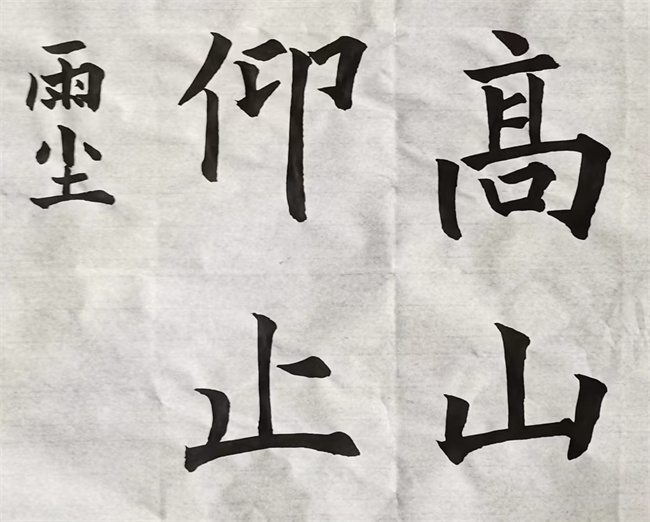 髙山
仰止
雨尘